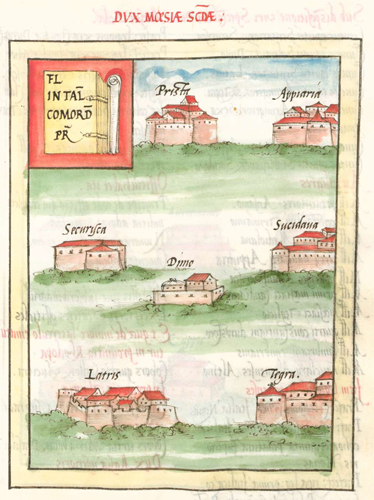 DVX MŒSIÆ SC̄DÆ:
FL
INTAL̄
COMORD
PR̄
Prista
Appiaria
Securisca
Sucidava
Dimo
Latris
Tegra.